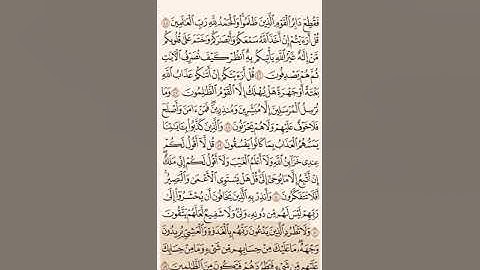 فَقُطِعَ دَابِرُ الْقَوْمِ الَّذِينَ ظَلَمُوا وَالْحَمْدُ لِلَّهِ رَبِّ الْعَالَمِينَ ٤٥
قُلْ أَرَأَيْتُمْ إِنْ أَخَذَ اللَّهُ سَمْعَكُمْ وَأَبْصَارَكُمْ وَخَتَمَ عَلَى قُلُوبِكُمْ
مَنْ إِلَٰهٌ غَيْرُ اللَّهِ يَأْتِيكُمْ بِهِ انْظُرْ كَيْفَ نُصَرِّفُ الْآيَاتِ
ثُمَّ هُمْ يَصْدِفُونَ ٤٦ قُلْ أَرَأَيْتَكُمْ إِنْ أَتَاكُمْ عَذَابُ اللَّهِ
بَغْتَةً أَوْ جَهْرَةً هَلْ يُهْلَكُ إِلَّا الْقَوْمُ الظَّالِمُونَ ٤٧ وَمَا
نُرْسِلُ الْمُرْسَلِينَ إِلَّا مُبَشِّرِينَ وَمُنْذِرِينَ فَمَنْ آمَنَ وَأَصْلَحَ
فَلَا خَوْفٌ عَلَيْهِمْ وَلَا هُمْ يَحْزَنُونَ ٤٨ وَالَّذِينَ كَذَّبُوا بِآيَاتِنَا
يَمَسُّهُمُ الْعَذَابُ بِمَا كَانُوا يَفْسُقُونَ ٤٩ قُلْ لَا أَقُولُ لَكُمْ
عِنْدِي خَزَائِنُ اللَّهِ وَلَا أَعْلَمُ الْغَيْبَ وَلَا أَقُولُ لَكُمْ إِنِّي مَلَكٌ
إِنْ أَتَّبِعُ إِلَّا مَا يُوحَى إِلَيَّ قُلْ هَلْ يَسْتَوِي الْأَعْمَى وَالْبَصِيرُ
أَفَلَا تَتَفَكَّرُونَ ٥٠ وَأَنْذِرْ بِهِ الَّذِينَ يَخَافُونَ أَنْ يُحْشَرُوا إِلَى
رَبِّهِمْ لَيْسَ لَهُمْ مِنْ دُونِهِ وَلِيٌّ وَلَا شَفِيعٌ لَعَلَّهُمْ يَتَّقُونَ
٥١ وَلَا تَطْرُدِ الَّذِينَ يَدْعُونَ رَبَّهُمْ بِالْغَدَاةِ وَالْعَشِيِّ يُرِيدُونَ
وَجْهَهُ مَا عَلَيْكَ مِنْ حِسَابِهِمْ مِنْ شَيْءٍ وَمَا مِنْ حِسَابِكَ
عَلَيْهِمْ مِنْ شَيْءٍ فَتَطْرُدَهُمْ فَتَكُونَ مِنَ الظَّالِمِينَ ٥٢